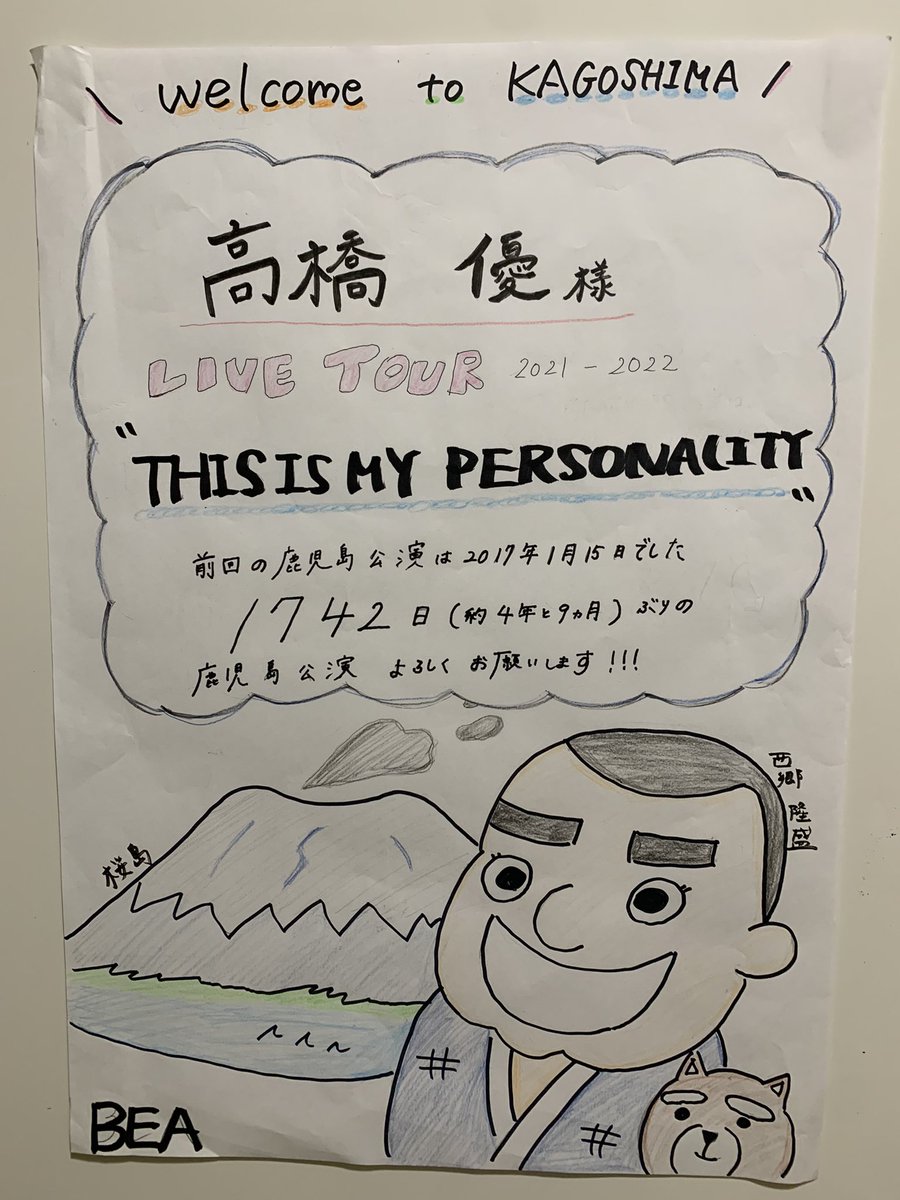 \ welcome to KAGOSHIMA /
高橋 優 様
LIVE TOUR 2021-2022
"THIS IS MY PERSONALITY"
前回の鹿児島公演は2017年1月15日でした
1742日(約4年と9ヵ月)ぶりの
鹿児島公演 よろしくお願いします!!!
西郷隆盛
桜島
BEA